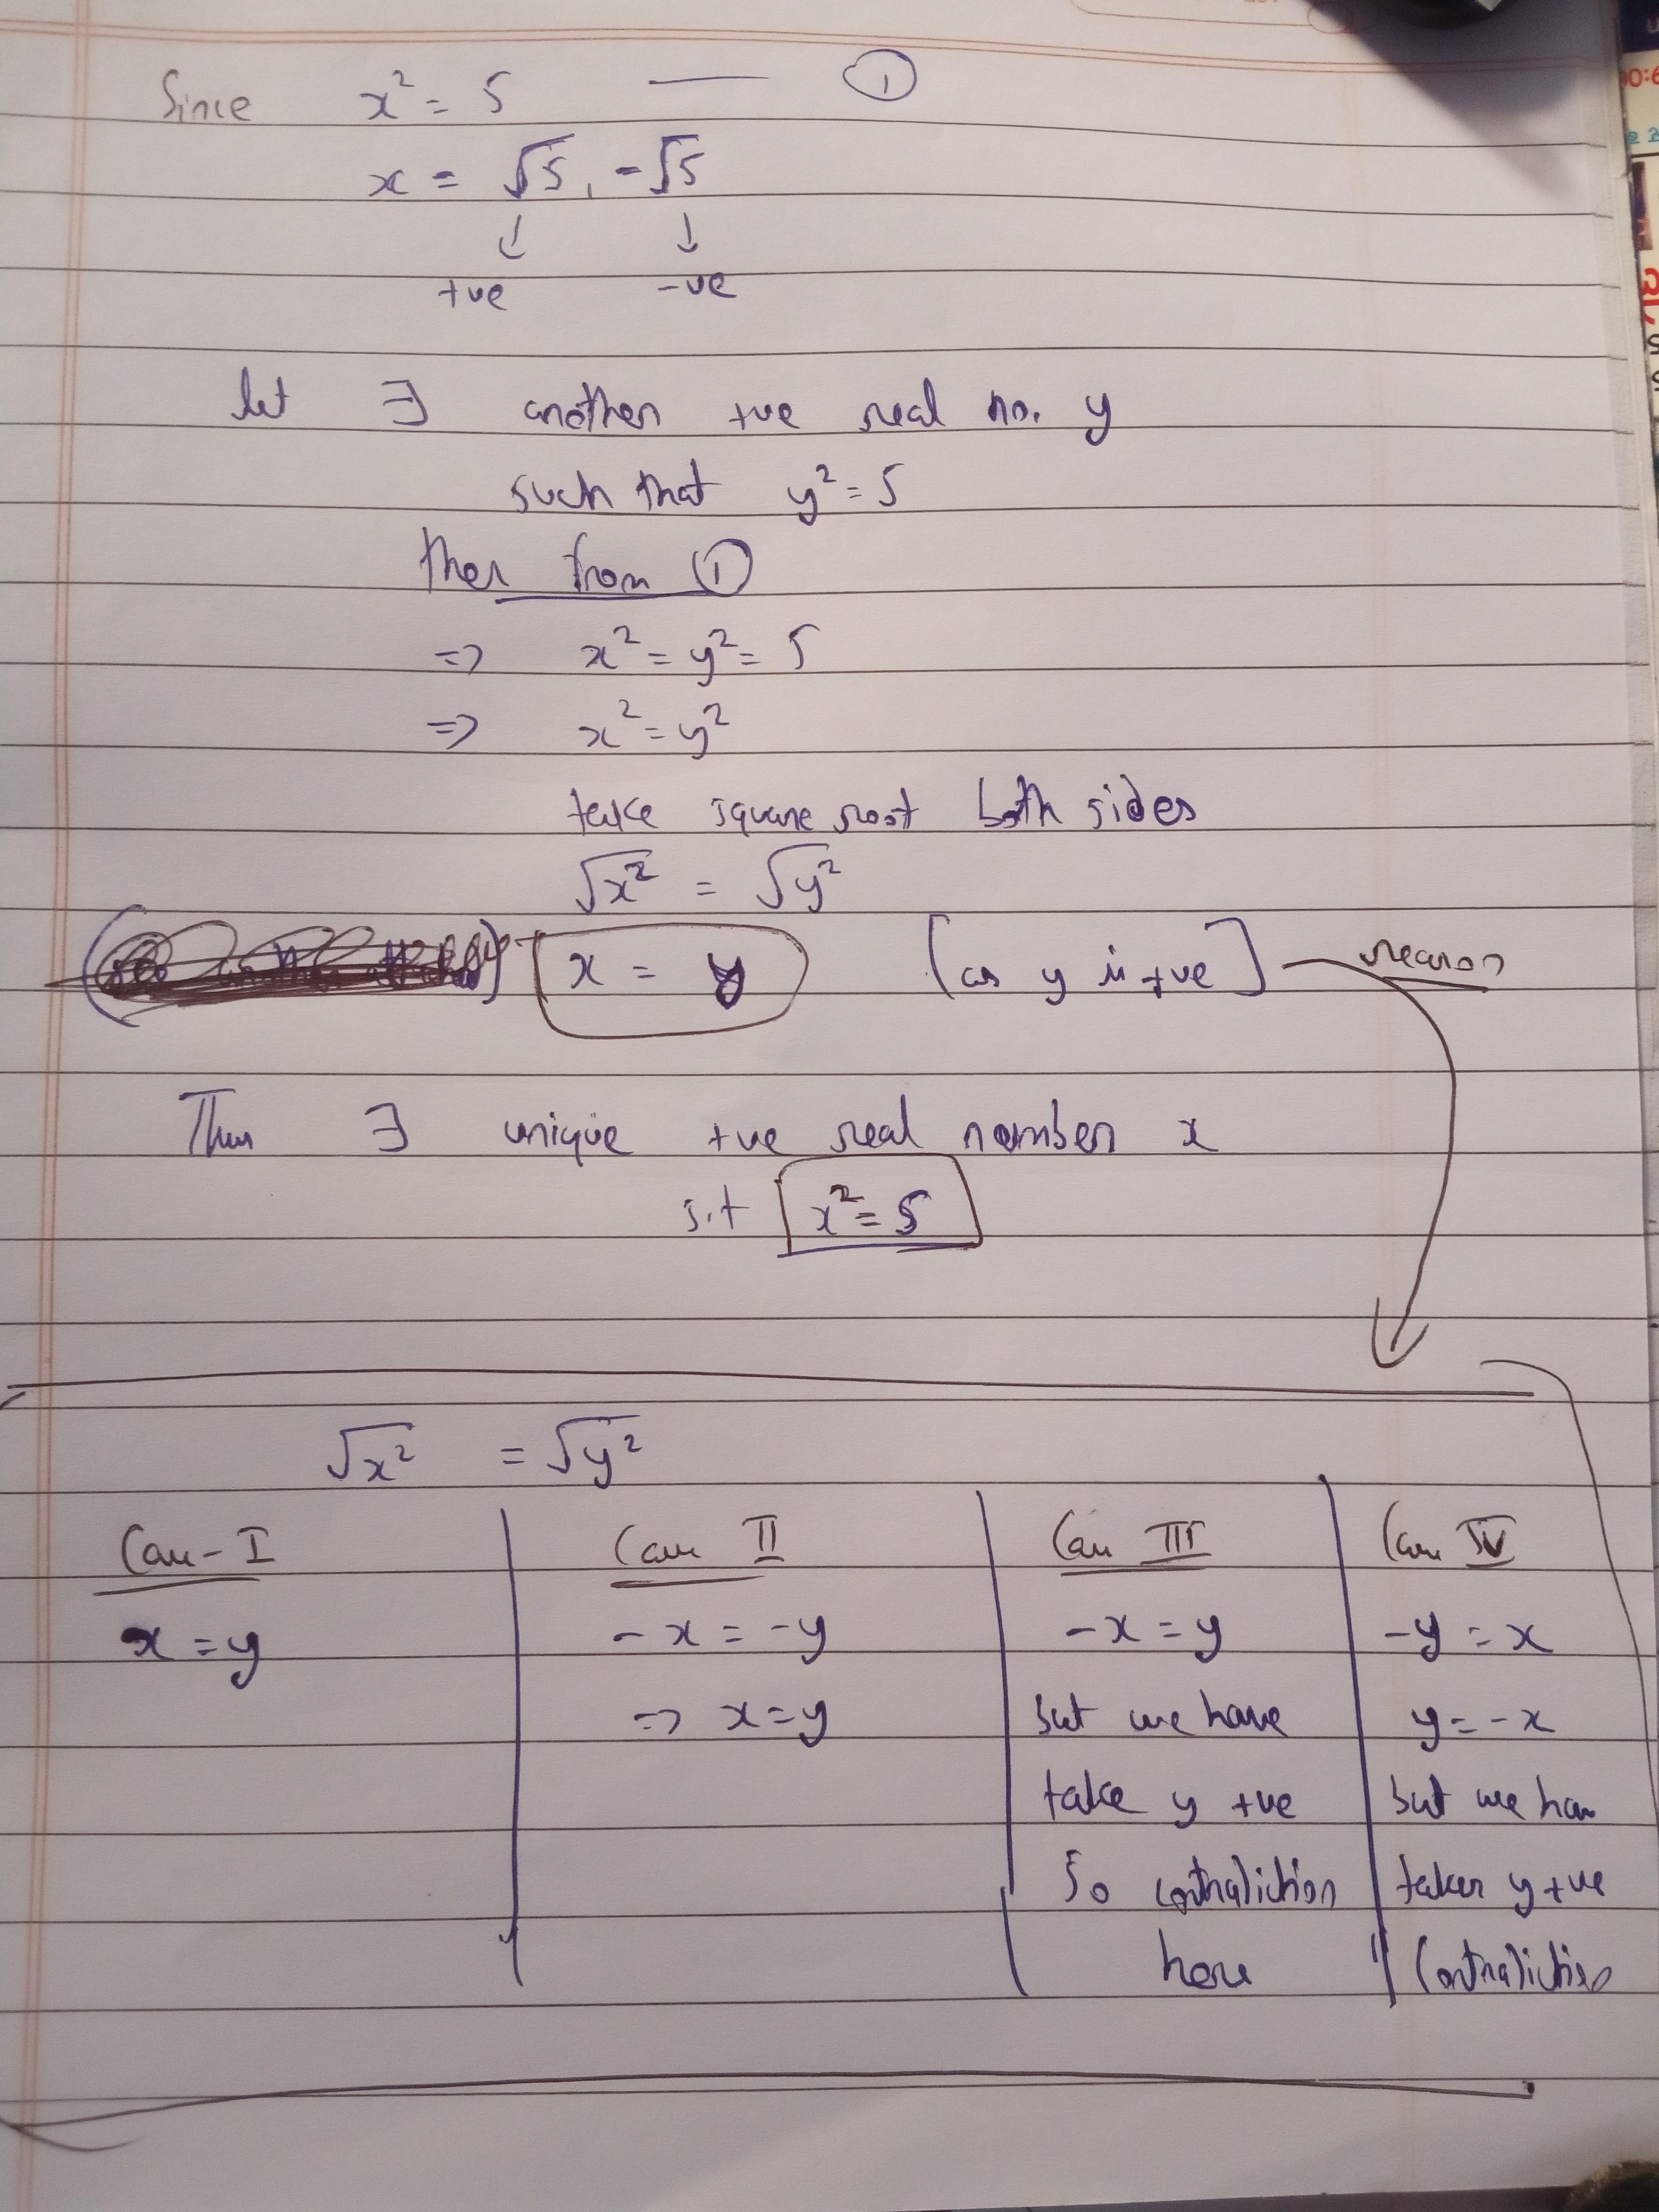 Since x² = 5 —— ①
x = √5, -√5
↓ ↓
+ve -ve
let ∃ another +ve real no. y
such that y² = 5
then from ①
=> x² = y² = 5
=> x² = y²
take square root both sides
√x² = √y²
x = y [as y is +ve] reason
Thus ∃ unique +ve real number x
s.t x² = 5
√x² = √y²
Case-I
x = y
Case II
-x = -y
=> x = y
Case III
-x = y
but we have
take y +ve
So contradiction
here
Case IV
-y = x
y = -x
but we have
taken y +ve
Contradiction